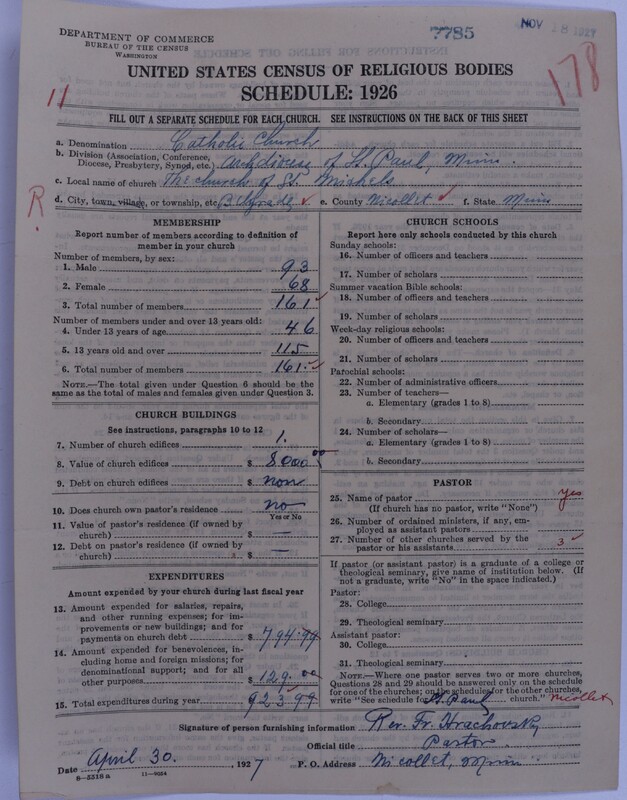 DEPARTMENT OF COMMERCE
BUREAU OF THE CENSUS
WASHINGTON
7785
NOV 18 1927
178
UNITED STATES CENSUS OF RELIGIOUS BODIES
SCHEDULE: 1926
11
FILL OUT A SEPARATE SCHEDULE FOR EACH CHURCH. SEE INSTRUCTIONS ON THE BACK OF THIS SHEET
a. Denomination Catholic Church
b. Division (Association, Conference, Diocese, Presbytery, Synod, etc.) Archdiocese of St. Paul, Minn.
c. Local name of church The church of St. Michels
d. City, town, village, or township, etc. Belgrade e. County Nicollet f. State Minn
R.
MEMBERSHIP
Report number of members according to definition of member in your church
Number of members, by sex:
1. Male 93
2. Female 68
3. Total number of members 161
Number of members under and over 13 years old:
4. Under 13 years of age 46
5. 13 years old and over 115
6. Total number of members 161
NOTE.—The total given under Question 6 should be same as the total of males and females given under Question 3.
CHURCH BUILDINGS
See instructions, paragraphs 10 to 12
7. Number of church edifices 1.
8. Value of church edifices $ 8000 00
9. Debt on church edifices $ non
10. Does church own pastor's residence no
Yes or No
11. Value of pastor's residence (if owned by church) $ —
12. Debt on pastor's residence (if owned by church) $ —
EXPENDITURES
Amount expended by your church during last fiscal year
13. Amount expended for salaries, repairs, and other running expenses; for improvements or new buildings; and for payments on church debt $ 794.99
14. Amount expended for benevolences, including home and foreign missions; for denominational support; and for all other purposes $ 129.00
15. Total expenditures during year 923.99
CHURCH SCHOOLS
Report here only schools conducted by this church
Sunday schools:
16. Number of officers and teachers
17. Number of scholars
Summer vacation Bible schools:
18. Number of officers and teachers
19. Number of scholars
Week-day religious schools:
20. Number of officers and teachers
21. Number of scholars
Parochial schools:
22. Number of administrative officers
23. Number of teachers—
a. Elementary (grades 1 to 8)
b. Secondary
24. Number of scholars—
a. Elementary (grades 1 to 8)
b. Secondary
PASTOR
25. Name of pastor yes
(If church has no pastor, write "None")
26. Number of ordained ministers, if any, employed as assistant pastors
27. Number of other churches served by the pastor or his assistants 3
If pastor (or assistant pastor) is a graduate of a college or theological seminary, give name of institution below. (If not a graduate, write "No" in the space indicated.)
Pastor:
28. College
29. Theological seminary
Assistant pastor:
30. College
31. Theological seminary
NOTE.—Where one pastor serves two or more churches, Questions 28 and 29 should be answered only on the schedule for one of the churches; on the schedules for the other churches, write "See schedule for St. Paul church." Nicollet
Signature of person furnishing information Rev. Fr. Hrachovsky
Official title Pastor
Date April 30., 1927 P. O. Address Nicollet, Minn
8—5318a 11—9624